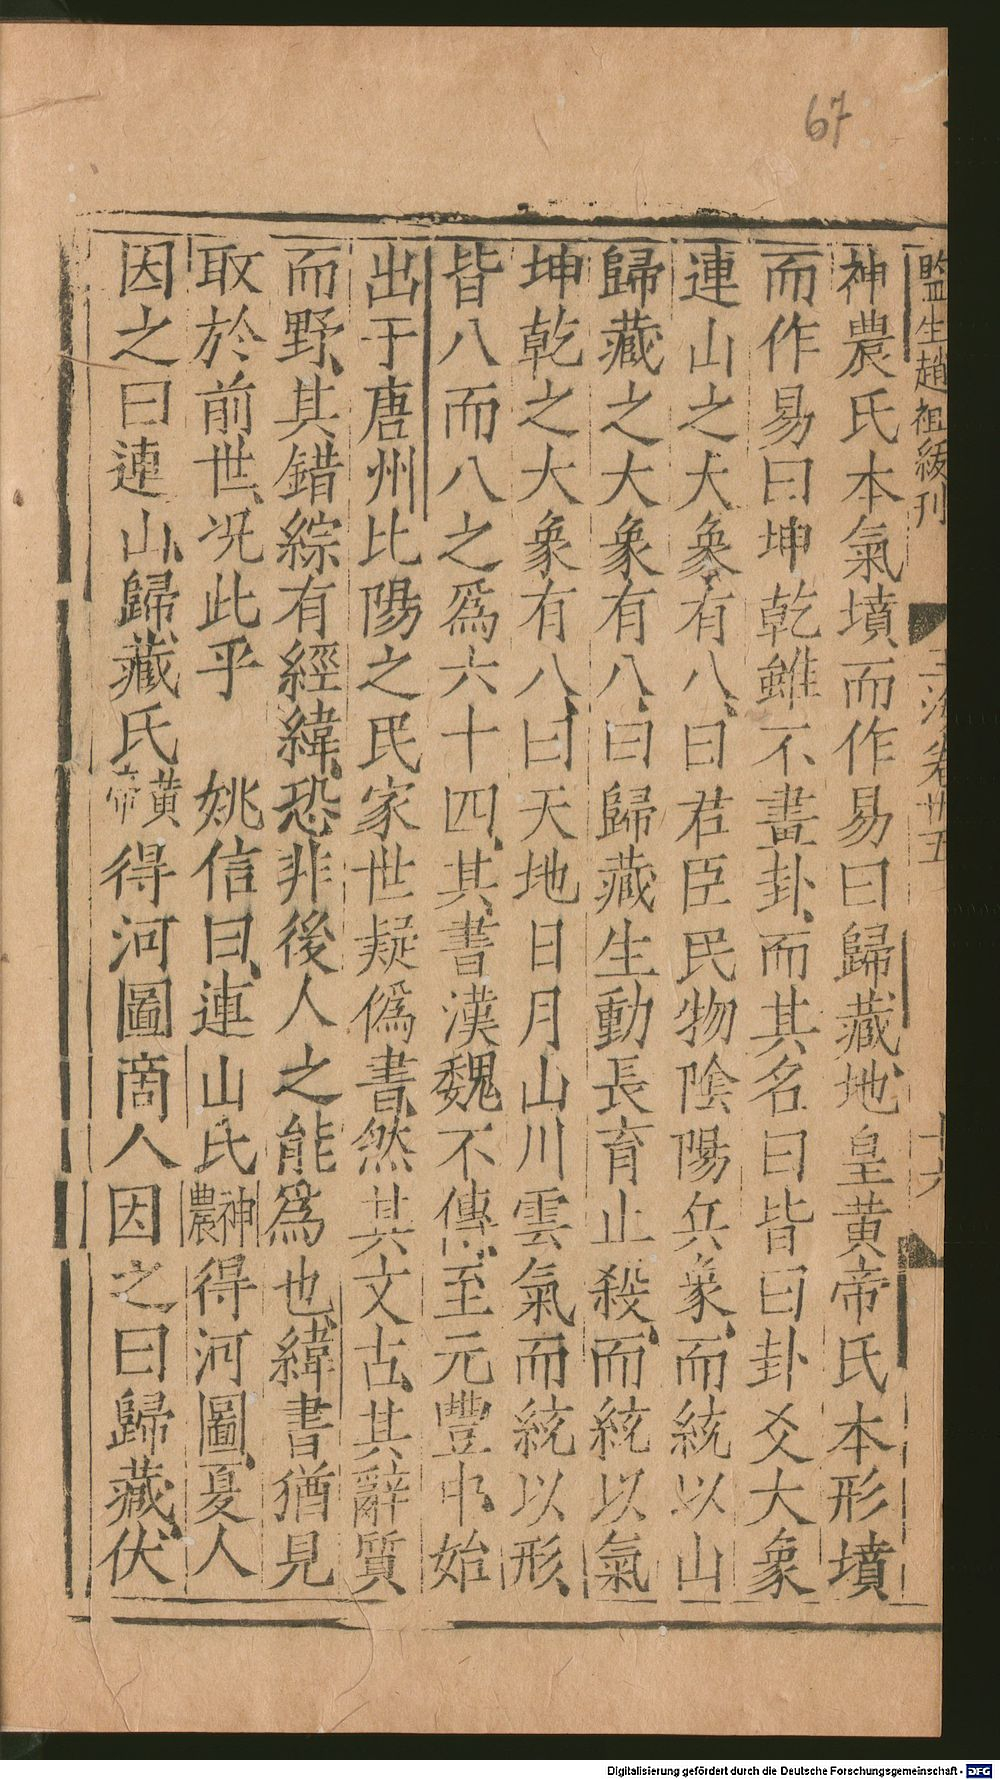 67
監生趙祖綬刊
玉海卷卅五
十六
神農氏本氣墳而作易曰歸藏地皇黃帝氏本形墳
而作易曰坤乾雖不畫卦而其名曰皆曰卦爻大象
連山之大象有八曰君臣民物陰陽兵象而統以山
歸藏之大象有八曰歸藏生動長育止殺而統以氣
坤乾之大象有八曰天地日月山川雲氣而統以形
皆八而八之爲六十四其書漢魏不傳至元豐中始
出于唐州比陽之民家世疑僞書然其文古其辭質
而野其錯綜有經緯恐非後人之能爲也緯書猶見
取於前世况此乎 姚信曰連山氏神農得河圖夏人
因之曰連山歸藏氏黃帝得河圖商人因之曰歸藏伏
Digitalisierung gefördert durch die Deutsche Forschungsgemeinschaft - DFG